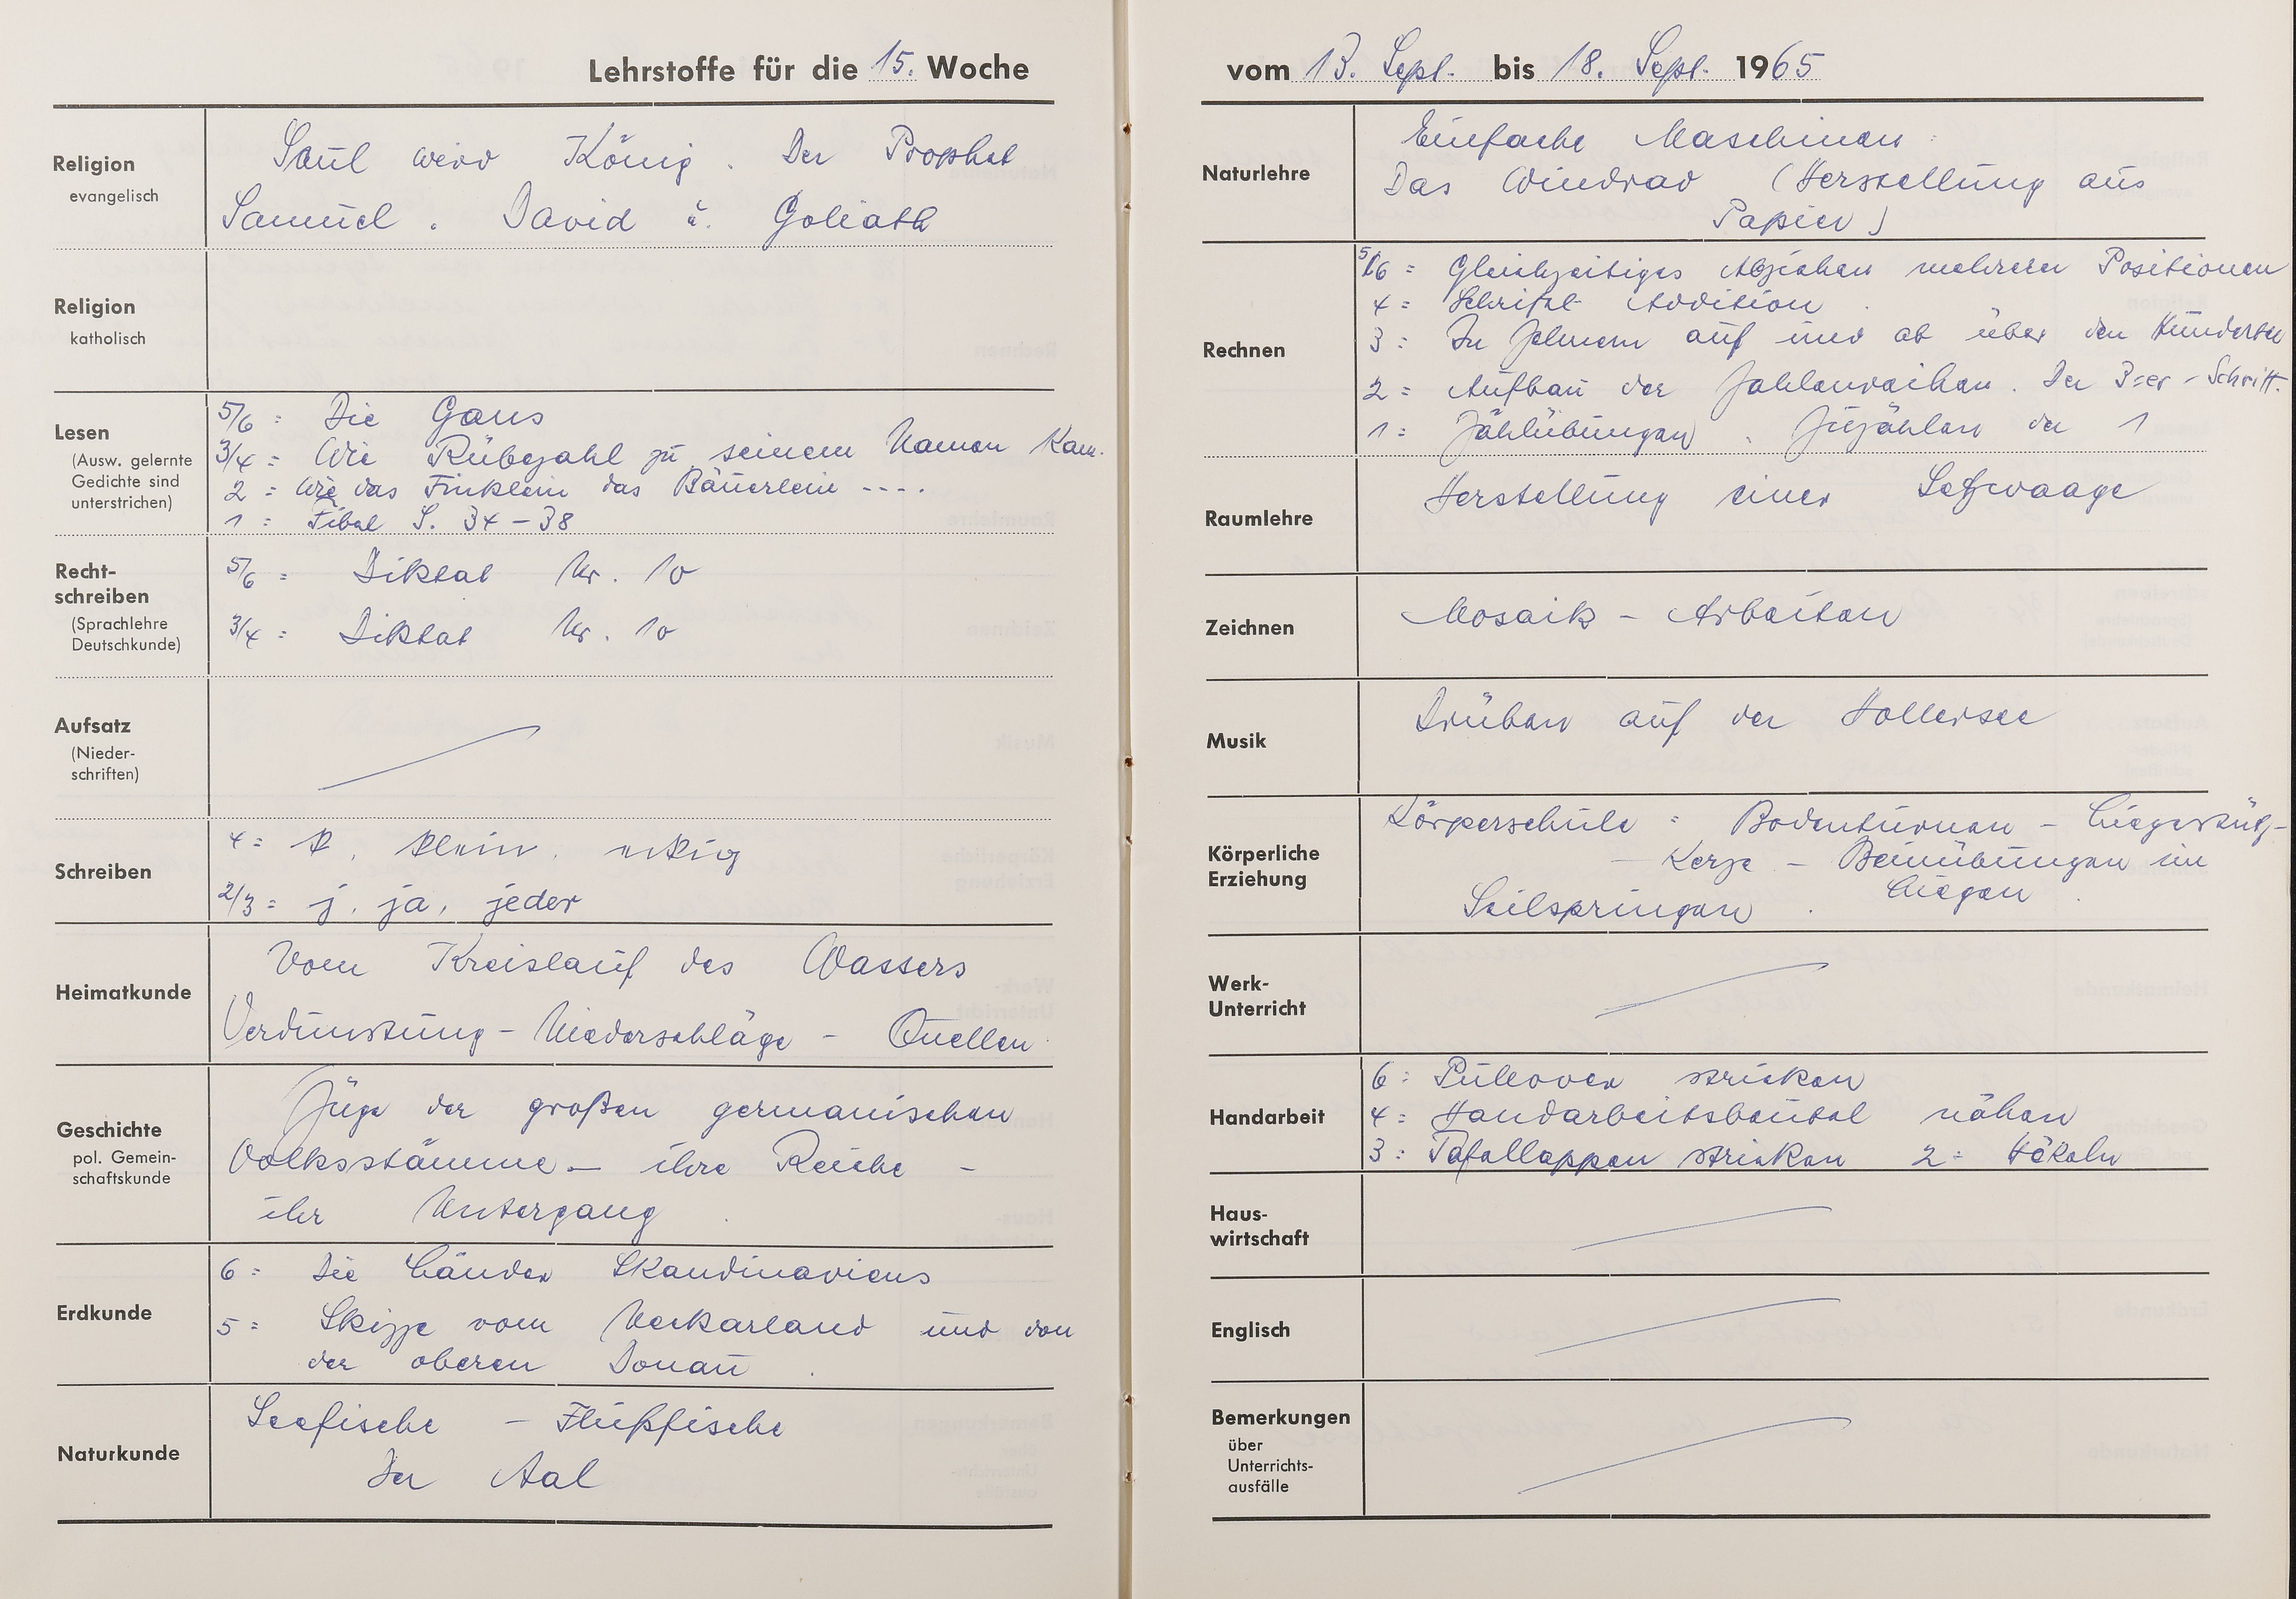 Lehrstoffe für die 15. Woche
Religion
evangelisch
Saul wird König. Der Prophet
Samuel. David u. Goliath
Religion
katholisch
Lesen
(Ausw. gelernte
Gedichte sind
unterstrichen)
5/6 = Die Gans
3/4 = Wie Rübezahl zu seinem Namen kam.
2 = Wie das Finklein das Bäuerlein ----.
1 = Fibel S. 34 – 38
Recht-
schreiben
(Sprachlehre
Deutschkunde)
5/6 = Diktat Nr. 10
3/4 = Diktat Nr. 10
Aufsatz
(Nieder-
schriften)
Schreiben
4 = k, klein, eckig
2/3 = j, ja, jeder
Heimatkunde
Vom Kreislauf des Wassers
Verdunstung – Niederschläge – Quellen
Geschichte
pol. Gemein-
schaftskunde
Züge der großen germanischen
Volksstämme – ihre Reiche –
ihr Untergang
Erdkunde
6 = Die Länder Skandinaviens
5 = Skizze vom Neckarland und von
der oberen Donau.
Naturkunde
Seefische – Flußfische
Der Aal
vom 13. Sept. bis 18. Sept. 1965
Naturlehre
Einfache Maschinen:
Das Windrad (Herstellung aus
Papier)
Rechnen
5/6 = Gleichzeitiges Abziehen mehrerer Positionen
4 = Schriftl. Addition
3 = In Zehnern auf und ab über den Hunderter
2 = Aufbau der Zahlenreihen. Der 3-er-Schritt.
1 = Zählübungen. Zuzählen der 1
Raumlehre
Herstellung einer Setzwaage
Zeichnen
Mosaik – Arbeiten
Musik
Drüben auf der Hollersee
Körperliche
Erziehung
Körperschule: Bodenturnen – Liegestütz –
Kerze – Beinübungen im
Liegen
Seilspringen.
Werk-
Unterricht
Handarbeit
6: Pullover stricken
4: Handarbeitsbeutel nähen
3: Tafellappen stricken 2: Häkeln
Haus-
wirtschaft
Englisch
Bemerkungen
über
Unterrichts-
ausfälle